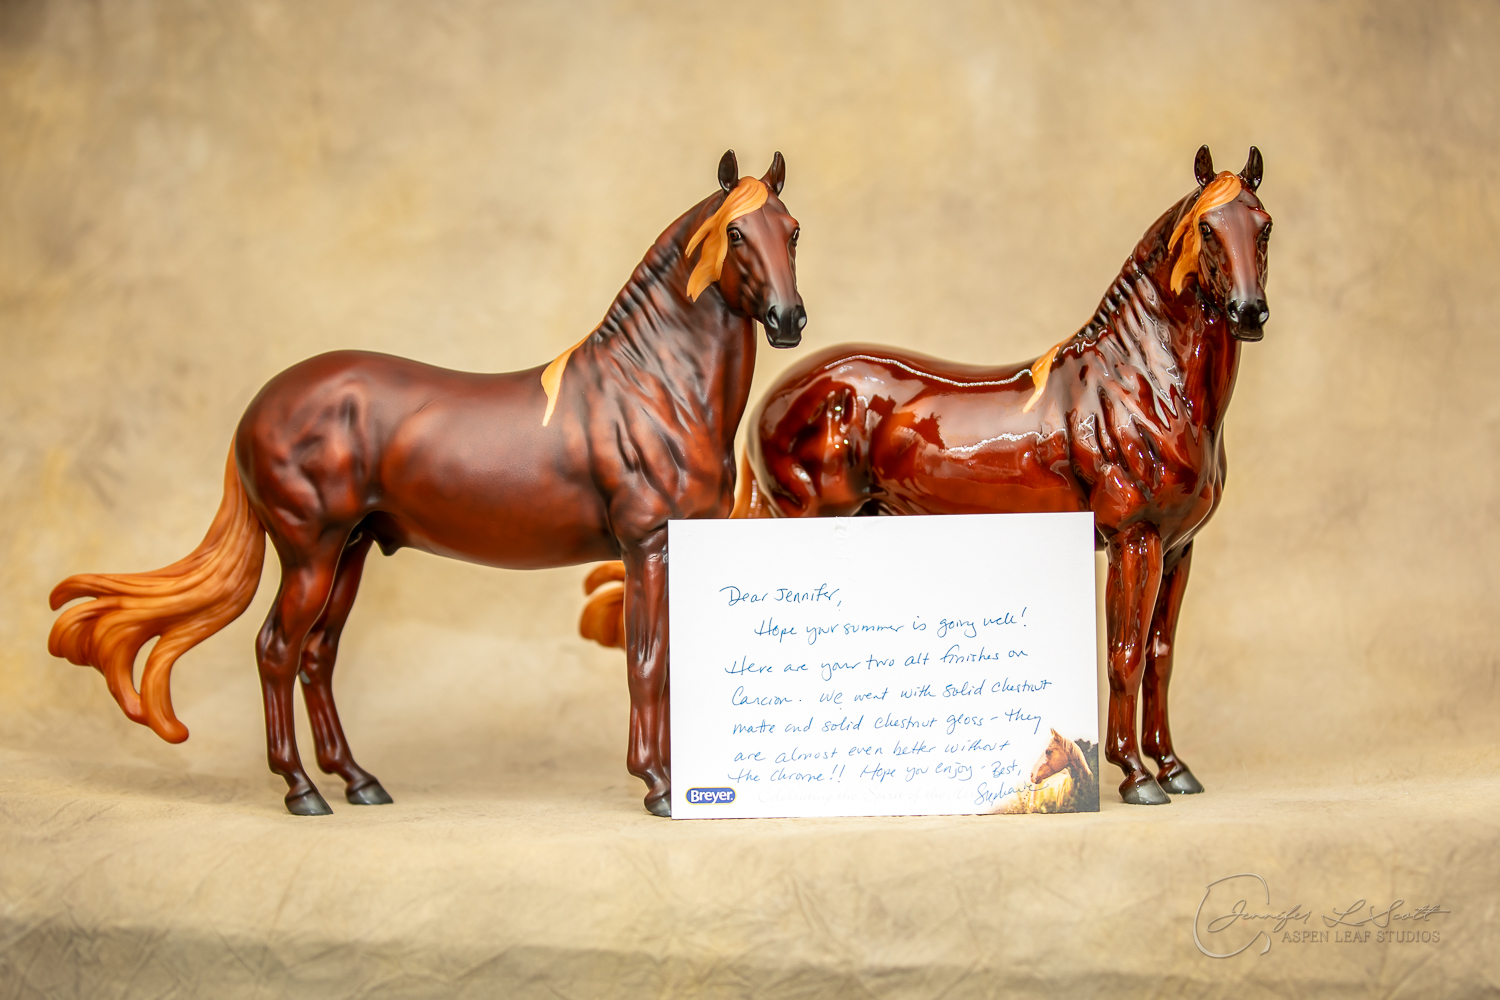 Dear Jennifer,
Hope your summer is going well!
Here are your two alt finishes on
Cancion. We went with solid chestnut
matte and solid chestnut gloss - they
are almost even better without
the chrome!! Hope you enjoy - Best,
Stephanie
Breyer
Jennifer L Scott
ASPEN LEAF STUDIOS